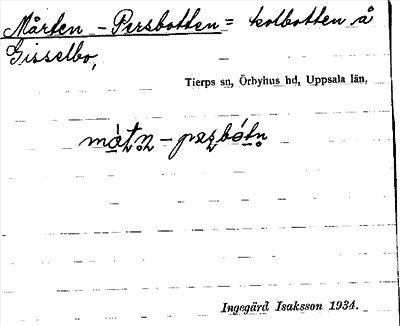 Mårten - Persbotten = kolbotten å
Gisselbo,
Tierps sn, Örbyhus hd, Uppsala län.
Ingegärd Isaksson 1934.